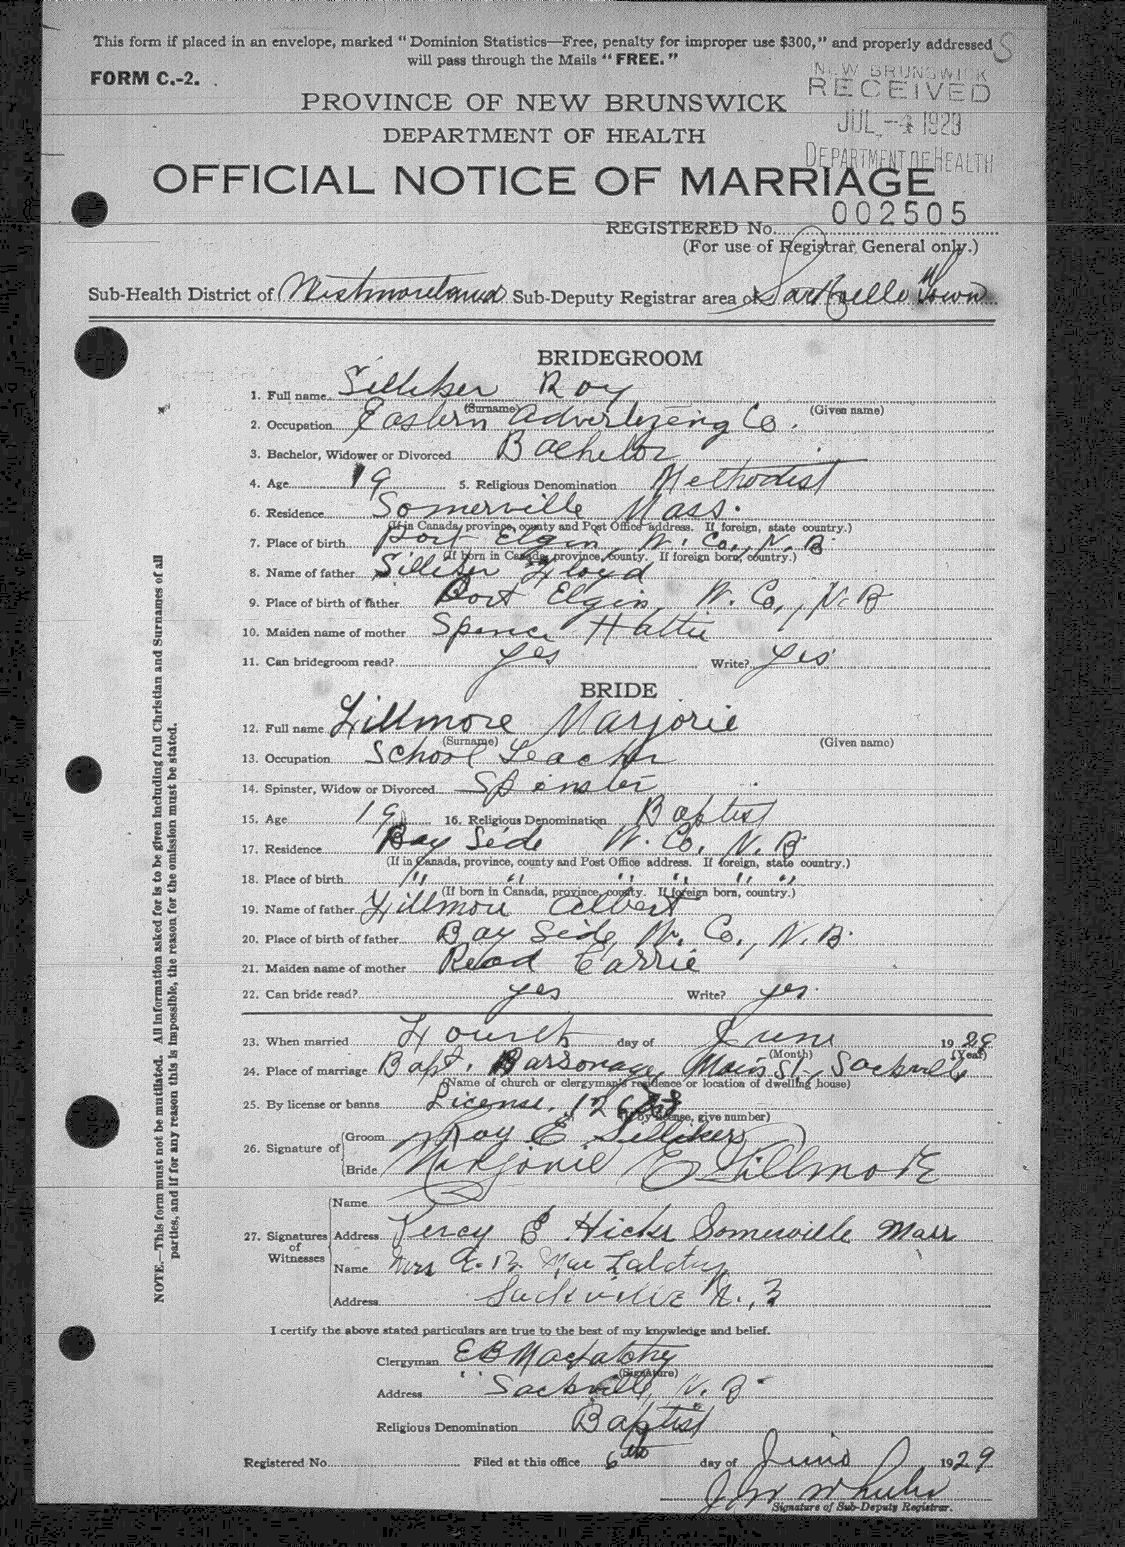 This form if placed in an envelope, marked "Dominion Statistics—Free, penalty for improper use $300," and properly addressed S
will pass through the Mails "FREE."
FORM C.-2.
NEW BRUNSWICK
RECEIVED
JUL -4 1929
DEPARTMENT OF HEALTH
PROVINCE OF NEW BRUNSWICK
DEPARTMENT OF HEALTH
OFFICIAL NOTICE OF MARRIAGE
REGISTERED No. 002505
(For use of Registrar General only.)
Sub-Health District of Westmoreland Sub-Deputy Registrar area of Sackville Town
BRIDEGROOM
1. Full name Silliker Roy
(Surname) (Given name)
2. Occupation Eastern Advertizeing Co.
3. Bachelor, Widower or Divorced Bachelor
4. Age 19 5. Religious Denomination Methodist
6. Residence Somerville Mass.
(If in Canada, province, county and Post Office address. If foreign, state country.)
7. Place of birth Port Elgin, W. Co., N. B
(If born in Canada, province, county. If foreign born, country.)
8. Name of father Silliker Floyd
9. Place of birth of father Port Elgin, W. Co., N. B
10. Maiden name of mother Spence Hattie
11. Can bridegroom read? yes Write? yes
BRIDE
12. Full name Fillmore Marjorie
(Surname) (Given name)
13. Occupation School Teacher
14. Spinster, Widow or Divorced Spinster
15. Age 19 16. Religious Denomination Baptist
17. Residence Bay Side W. Co. N. B
(If in Canada, province, county and Post Office address. If foreign, state country.)
18. Place of birth " " " " " "
(If born in Canada, province, county. If foreign born, country.)
19. Name of father Fillmore Albert
20. Place of birth of father Bay Side, W. Co., N. B.
21. Maiden name of mother Read Carrie
22. Can bride read? yes Write? yes.
23. When married Fourth day of June 1929
(Month) (Year)
24. Place of marriage Bapt. Parsonage, Main St., Sackville
(Name of church or clergyman's residence or location of dwelling house)
25. By license or banns License.
(If by license, give number)
26. Signature of
Groom Roy E Sillikers
Bride Marjorie E Fillmore
27. Signatures of Witnesses
Name
Address Percy E Hicks Somerville Mass
Name Mrs E. B. MacLatchy
Address Sackville N. B
I certify the above stated particulars are true to the best of my knowledge and belief.
Clergyman E B MacLatchy
(Signature)
Address Sackville, N. B
Religious Denomination Baptist
Registered No. Filed at this office 6th day of June 1929
Signature of Sub-Deputy Registrar.
NOTE.—This form must not be mutilated. All information asked for is to be given including full Christian and Surnames of all
parties, and if for any reason this is impossible, the reason for the omission must be stated.